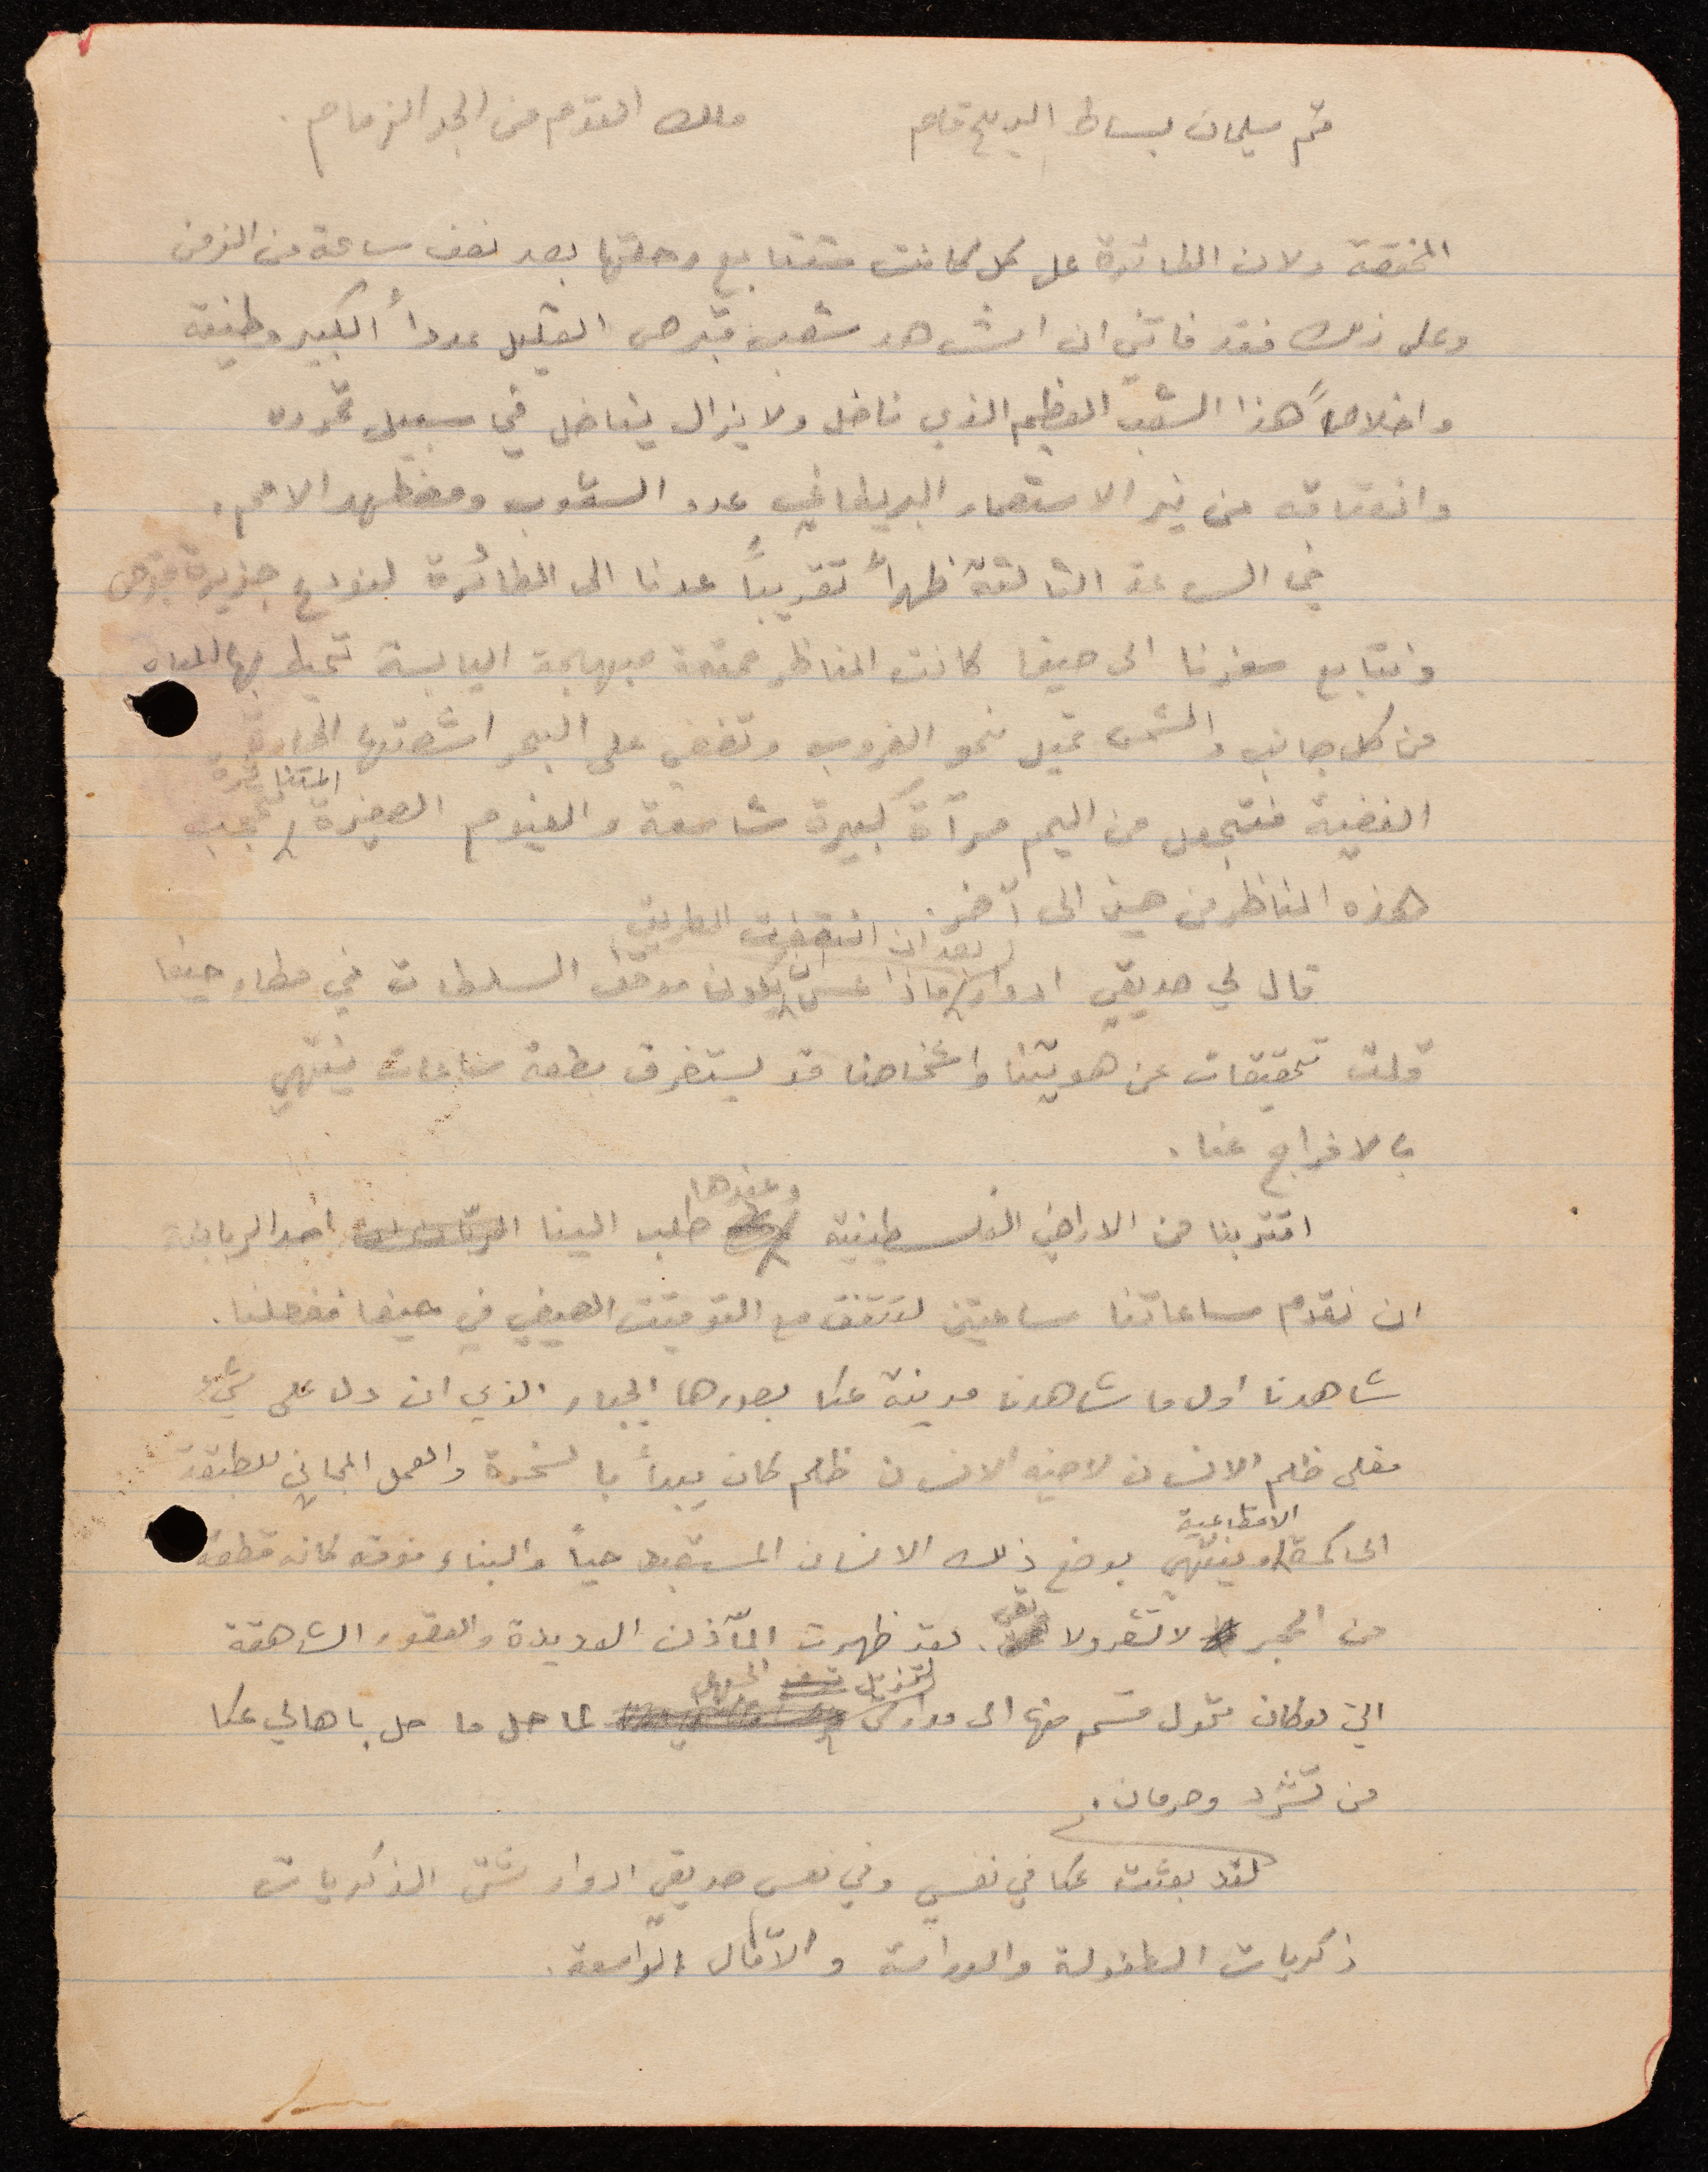 قم سليمان بساط الريح قام ملك القوم من الجد الزمام.
المختصة ولان الطائرة على كل كانت ستتابع رحلتها بعد نصف ساعة من الزمن
وعلى ذلك فقد فاتني ان اشاهد شعب قبرص القليل عدداً الكبير وطنية
واخلاصاً هذا الشعب العظيم الذي ناضل ولا يزال يناضل في سبيل تحرره
وانعتاقه من نير الاستعمار البريطاني عدو الشعوب ومضطهد الامم.
في الساعة الثالثة ظهراً تقريباً عدنا الى الطائرة لنودع جزيرة قبرص
ونتابع سفرنا الى حيفا كانت المناظر ممتعة مبهجة اليابسة تحيط بها المياه
من كل جانب والشمس تميل نحو الغروب وتضفي على البحر اشعتها الحارة
الفضية فتجعل من اليم مرآة كبيرة شاسعة والغيوم الصغيرة المتناثرة تحجب
هذه المناظر من حين الى آخر.
قال لي صديقي ادوار بعد ان انتصفت الطريق ماذا عسى ان يكون موقف السلطات في مطار حيفا
قلت تحقيقات عن هويتنا واشخاصنا قد يستغرق بضعة ساعات ينتهي
بالافراج عنا.
اقتربنا من الاراضي الفلسطينية وعندها طلب الينا احد الربابنة
ان نقدم ساعاتنا ساعتين لتتفق مع التوقيت الصيفي في حيفا ففعلنا.
شاهدنا اول ما شاهدنا مدينة عكا بسورها الجبار الذي ان دل على شيء
فعلى ظلم الانسان لاخيه الانسان ظلم كان يبدأ بالسخرة والعمل المجاني للطبقة
الحاكمة الاقطاعية وينتهي بوضع ذلك الانسان المستعبد حياً والبناء فوقه كانه قطعة
من الحجر لا تشعر ولا تعي. لقد ظهرت المآذن العديدة والقصور الشاهقة
التي لو كان تحول قسم منها الى مدارس لتزيل الجهل لما حل ما حل باهالي عكا
من تشرد وحرمان.
لقد بعثت عكا في نفسي وفي نفس صديقي ادوار شتى الذكريات
ذكريات الطفولة والدراسة والآمال الواسعة.